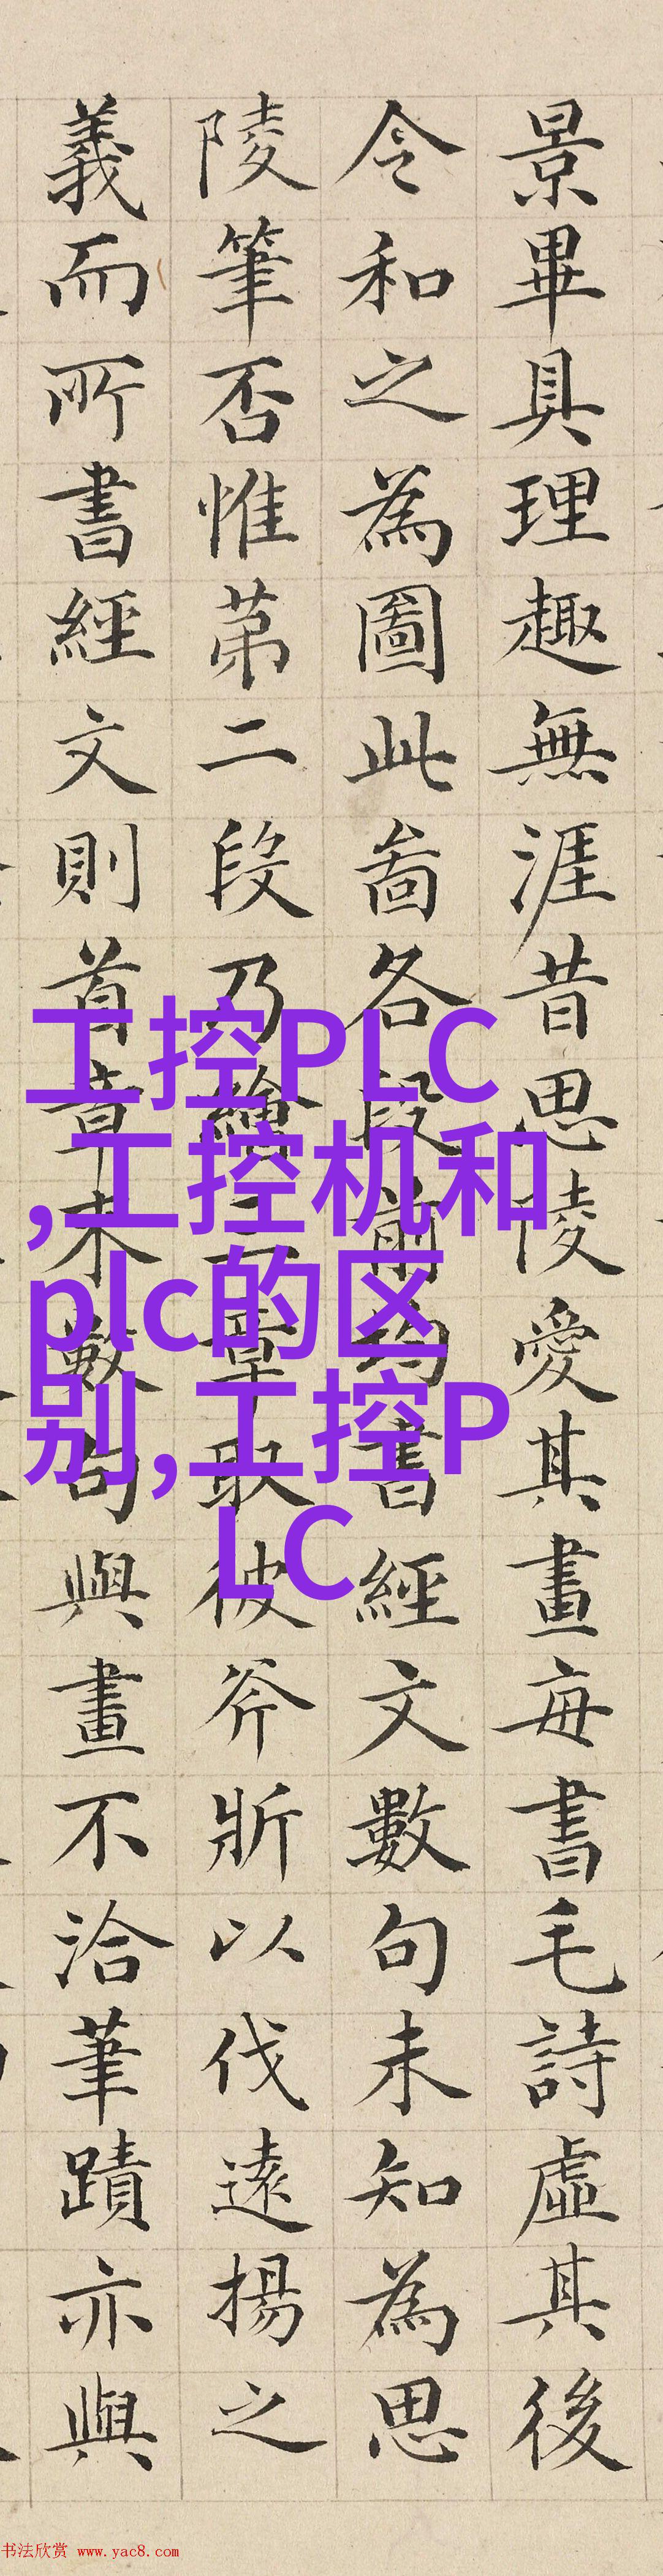 景畢具理趣無涯昔思陵愛其畫每書毛詩虛其後
令和之為圖此啚各段前均書經文數句未知為思
陵筆否惟苐二段乃繪三章取彼斧斨以伐遠揚之
義而所書經文則首章末數句與畫不洽筆蹟亦與
工控PLC
,工控机和
plc的区
别,工控P
LC
书法欣赏 www.yac8.com